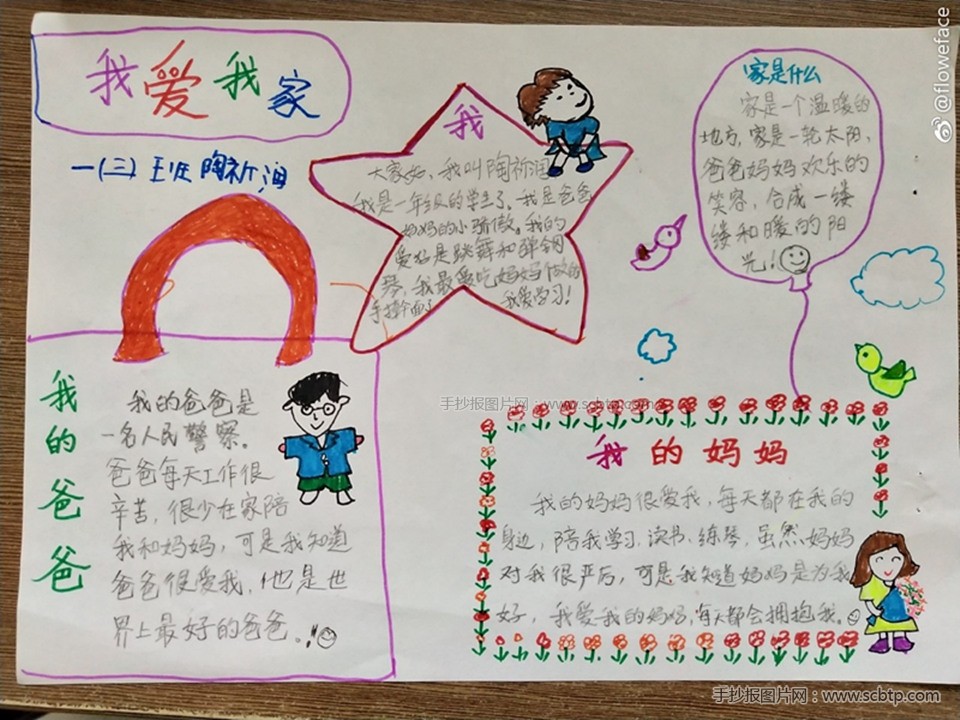 我爱我家
一(三)王班 陶祈润
我
大家好,我叫陶祈润
我是一年级的学生了。我是爸爸
妈妈的小骄傲。我的
爱好是跳舞和弹钢
琴,我最爱吃妈妈做的
手擀面了 我爱学习!
家是什么
家是一个温暖的
地方,家是一轮太阳,
爸爸妈妈欢乐的
笑容,合成一缕
缕和暖的阳
光!
我的爸爸
我的爸爸是
一名人民警察。
爸爸每天工作很
辛苦,很少在家陪
我和妈妈,可是我知道
爸爸很爱我,他是世
界上最好的爸爸。!
我的妈妈
我的妈妈很爱我,每天都在我的
身边,陪我学习、读书、练琴,虽然,妈妈
对我很严后,可是我知道妈妈是为我
好,我爱我的妈妈,每天都会拥抱我。
手抄报图片网:www.scbtp.com
手抄报图片网:www.scbtp.com
@floweface